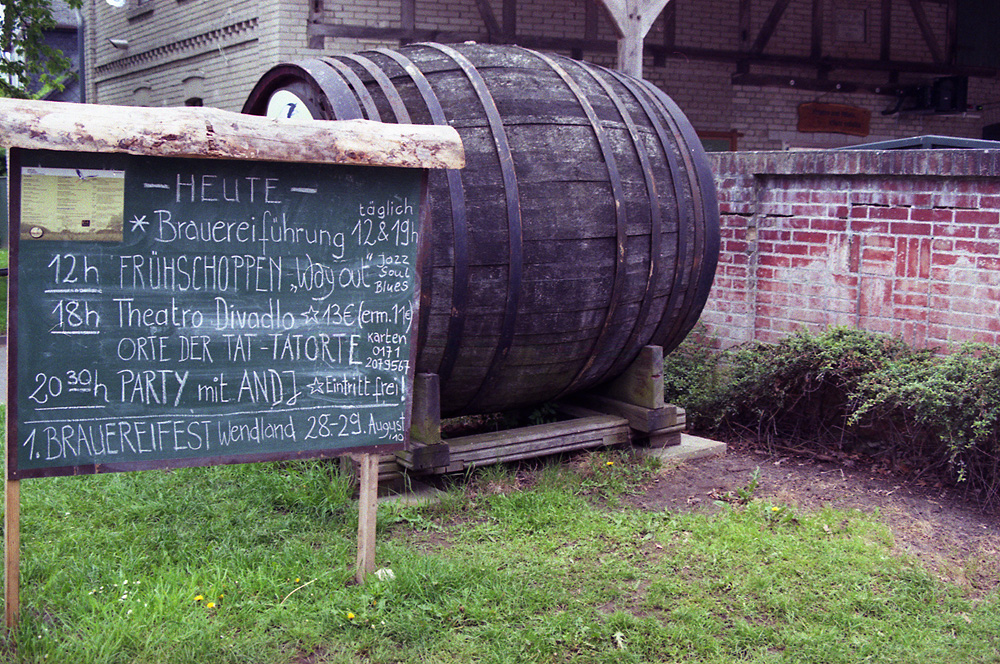 — HEUTE —
täglich
* Brauereiführung 12 & 19h
12h FRÜHSCHOPPEN „Way out“ Jazz Soul Blues
18h Theatro Divadlo ☆ 13€ (erm. 11€
ORTE DER TAT - TATORTE Karten 0171 2079567
20 30 h PARTY mit ANDJ ☆ Eintritt frei!
1. BRAUEREIFEST Wendland 28-29. August /10